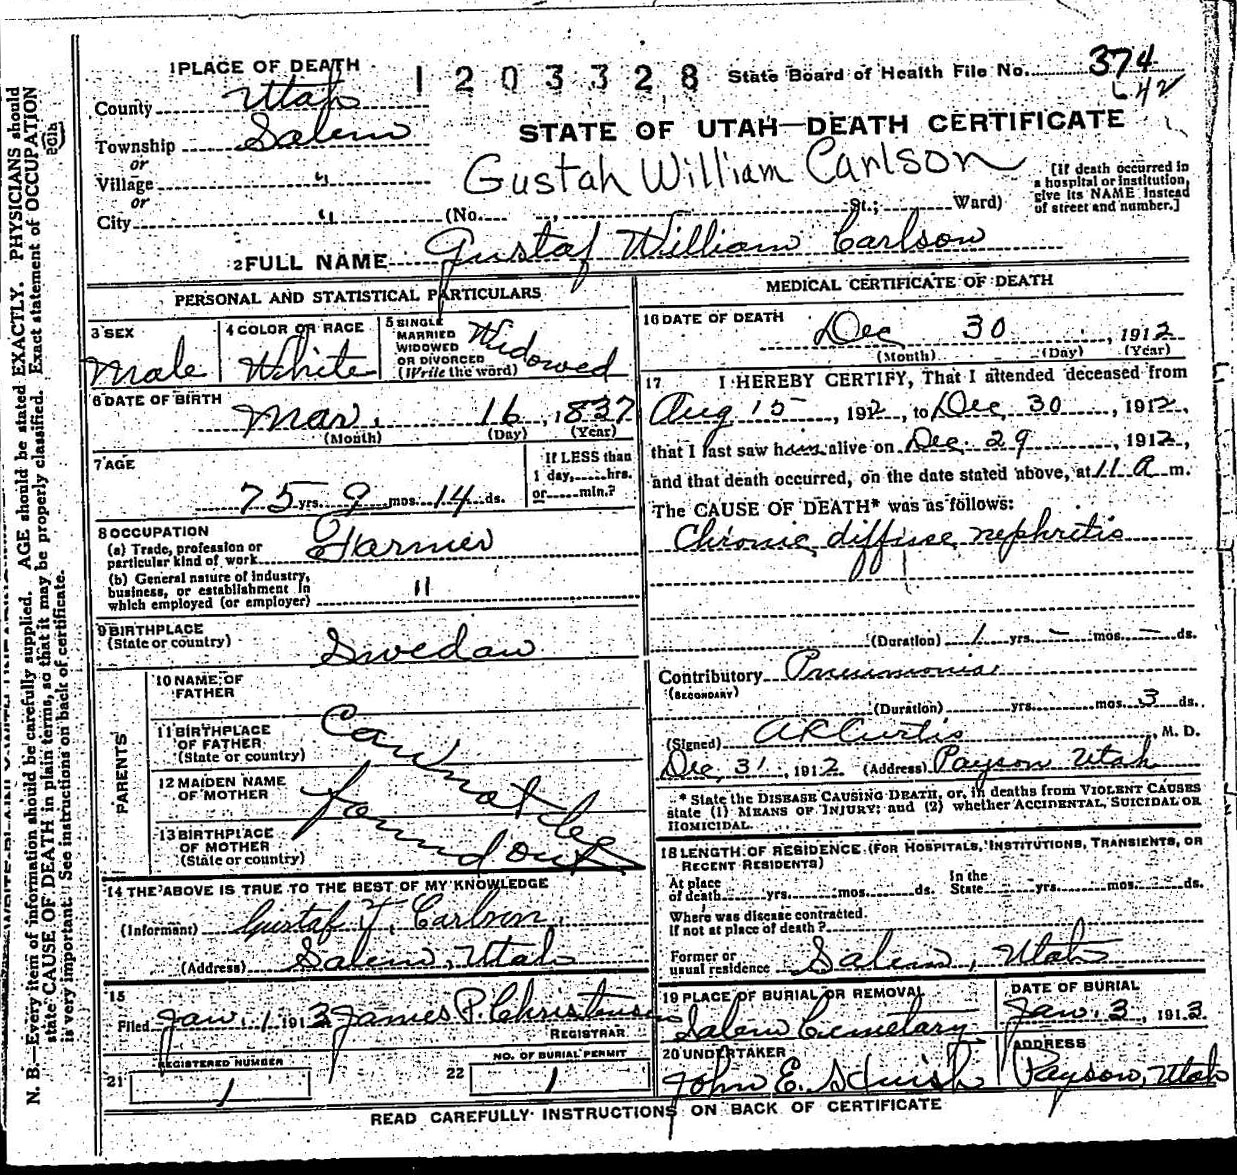 1 PLACE OF DEATH
1203328
State Board of Health File No. 374
County Utah
Township Salem
or
Village "
or
City "
STATE OF UTAH—DEATH CERTIFICATE
Gustah William Carlson
(No. , St.; Ward)
[If death occurred in
a hospital or institution,
give its NAME instead
of street and number.]
2 FULL NAME Gustaf William Carlson
PERSONAL AND STATISTICAL PARTICULARS
3 SEX
Male
4 COLOR OR RACE
White
5 SINGLE
MARRIED
WIDOWED
OR DIVORCED
(Write the word)
Widowed
6 DATE OF BIRTH
Mar. 16, 1837
(Month) (Day) (Year)
7 AGE
75 yrs. 9 mos. 14 ds.
If LESS than
1 day, hrs.
or min.?
8 OCCUPATION
(a) Trade, profession or
particular kind of work Farmer
(b) General nature of industry,
business, or establishment in
which employed (or employer) "
9 BIRTHPLACE
(State or country) Swedan
PARENTS
10 NAME OF
FATHER
11 BIRTHPLACE
OF FATHER
(State or country)
12 MAIDEN NAME
OF MOTHER
13 BIRTHPLACE
OF MOTHER
(State or country)
Can not be
found out
14 THE ABOVE IS TRUE TO THE BEST OF MY KNOWLEDGE
(Informant) Gustaf T. Carlson
(Address) Salem, Utah
15
Filed Jan. 1 1913 James P. Christensen
REGISTRAR
REGISTERED NUMBER
21 1
NO. OF BURIAL PERMIT
22 1
MEDICAL CERTIFICATE OF DEATH
16 DATE OF DEATH
Dec 30, 1912
(Month) (Day) (Year)
17 I HEREBY CERTIFY, That I attended deceased from
Aug 15, 1912, to Dec 30, 1912,
that I last saw him alive on Dec. 29, 1912,
and that death occurred, on the date stated above, at 11 a m.
The CAUSE OF DEATH* was as follows:
Chronic diffuse nephritis
(Duration) 1 yrs. – mos. – ds.
Contributory Pneumonia
(SECONDARY)
(Duration) yrs. mos. 3 ds.
(Signed) A R Curtis, M. D.
Dec, 31, 1912 (Address) Payson Utah
* State the DISEASE CAUSING DEATH, or, in deaths from VIOLENT CAUSES
state (1) MEANS OF INJURY; and (2) whether ACCIDENTAL, SUICIDAL OR
HOMICIDAL.
18 LENGTH OF RESIDENCE (FOR HOSPITALS, INSTITUTIONS, TRANSIENTS, OR
RECENT RESIDENTS)
At place
of death yrs. mos. ds.
In the
State yrs. mos. ds.
Where was disease contracted
If not at place of death?
Former or
usual residence Salem, Utah
19 PLACE OF BURIAL OR REMOVAL
Salem Cemetary
DATE OF BURIAL
Jan. 3, 1913.
20 UNDERTAKER
John E.
ADDRESS
Payson, Utah
READ CAREFULLY INSTRUCTIONS ON BACK OF CERTIFICATE
N. B.—Every item of information should be carefully supplied. AGE should be stated EXACTLY. PHYSICIANS should
state CAUSE OF DEATH in plain terms, so that it may be properly classified. Exact statement of OCCUPATION
is very important. See instructions on back of certificate.